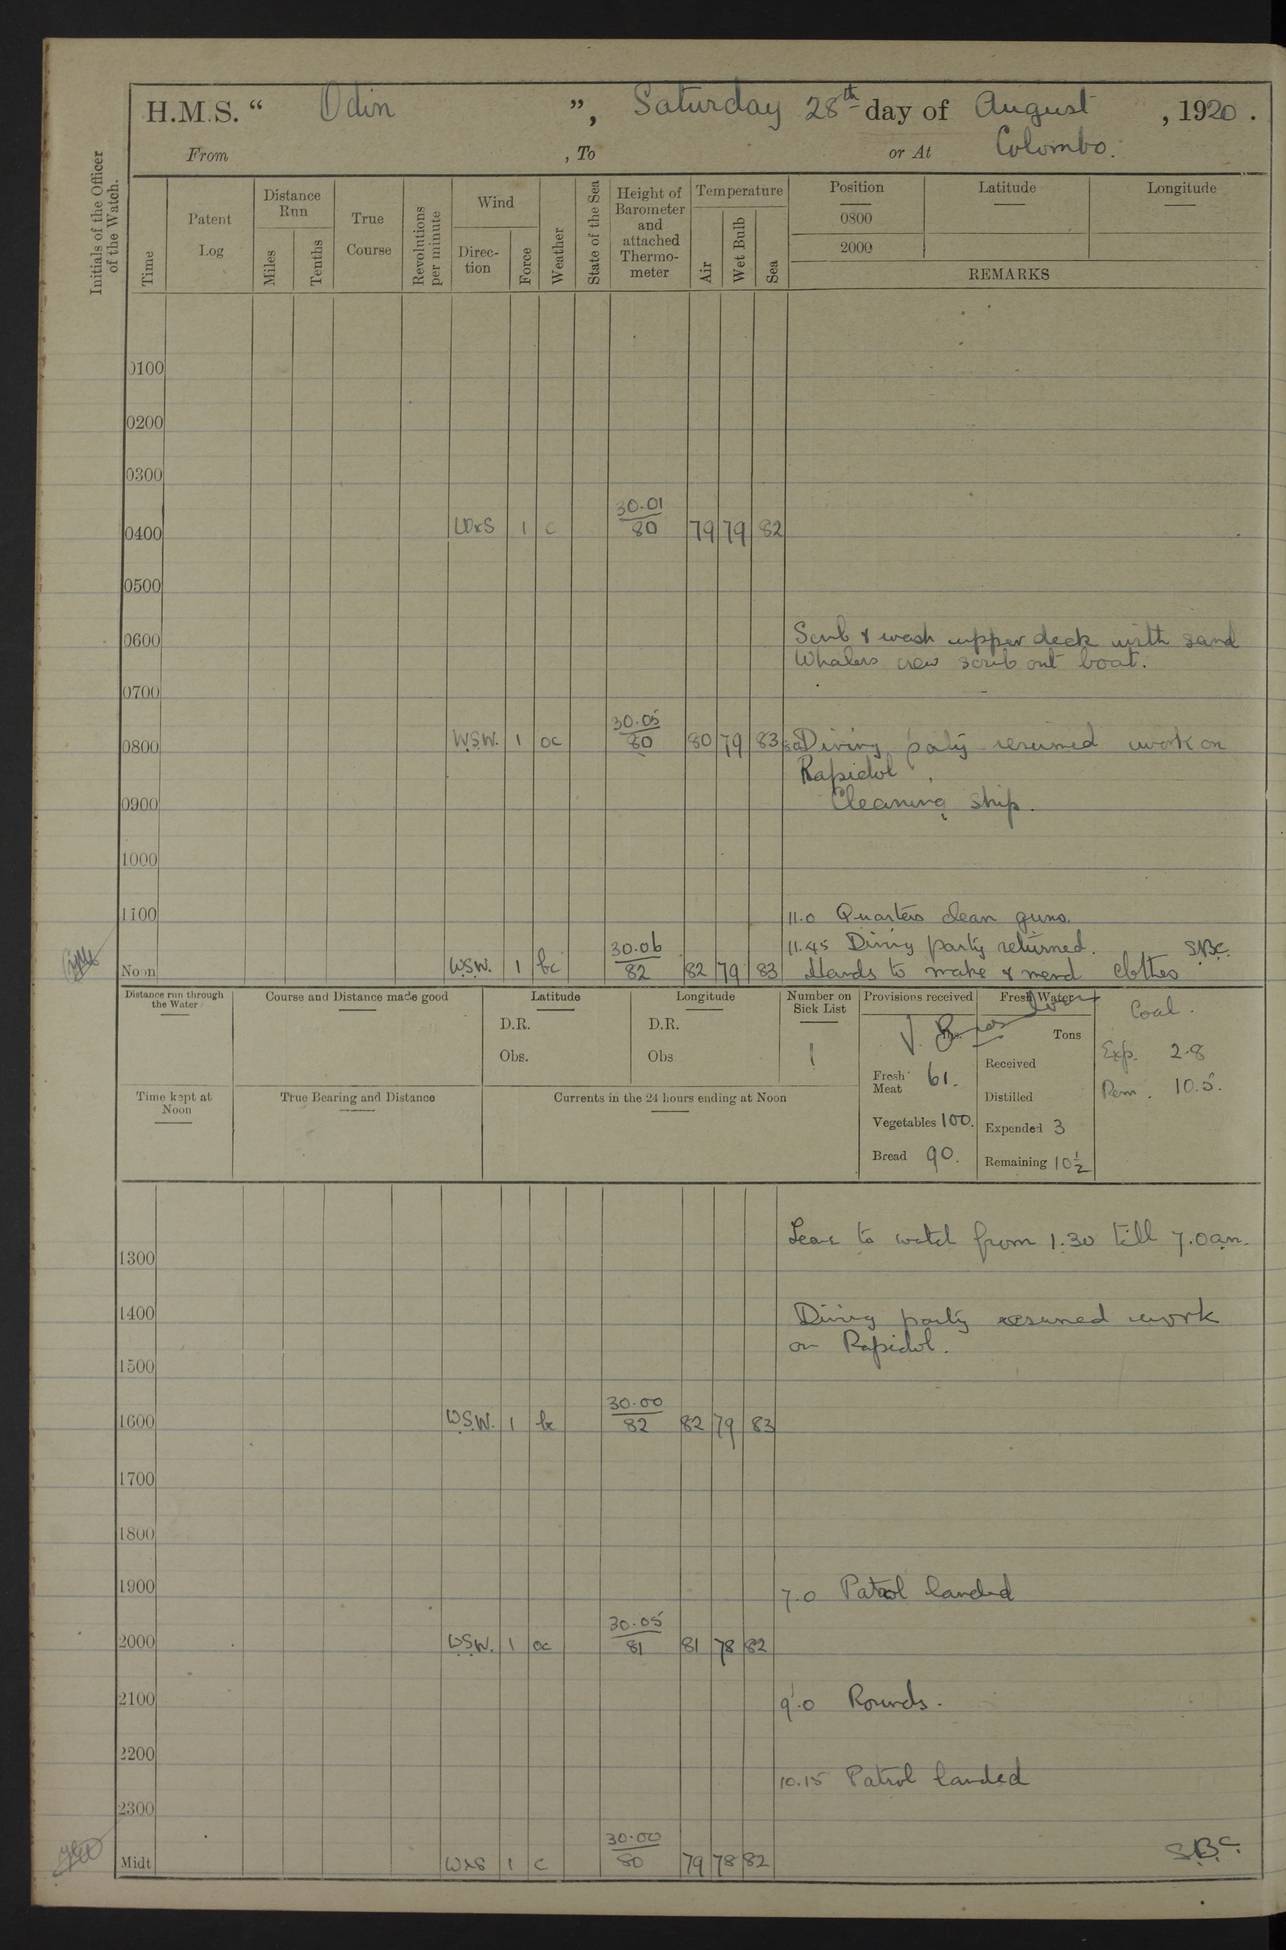 H.M.S. “ Odin ”, Saturday 28th day of August , 1920 .
From , To or At Colombo.
Initials of the Officer of the Watch.
Time
Patent Log
Distance Run
Miles
Tenths
True Course
Revolutions per minute
Wind
Direction
Force
Weather
State of the Sea
Height of Barometer and attached Thermometer
Temperature
Air
Wet Bulb
Sea
Position Latitude Longitude
0800
2000
REMARKS
0100
0200
0300
0400 WxS 1 c 30.01/80 79 79 82
0500
0600 Scrub & wash upper deck with sand
Whalers crew scrub out boat.
0700
0800 W.S.W. 1 oc 30.05/80 80 79 83 Diving party resumed work on
Rapidol.
0900 Cleaning ship.
1000
1100 11.0 Quarters clean guns.
11.45 Diving party returned. S.B.C.
Noon W.S.W. 1 bc 30.06/82 82 79 83 Hands to make & mend clothes
Distance run through the Water
Course and Distance made good
Latitude
D.R.
Obs.
Longitude
D.R.
Obs
Number on Sick List
1
Provisions received
lbs.
Fresh Meat 61.
Vegetables 100.
Bread 90.
Fresh Water
Tons
Received
Distilled
Expended 3
Remaining 10½
Coal.
Exp. 2.8
Rem. 10.5.
Time kept at Noon
True Bearing and Distance
Currents in the 24 hours ending at Noon
Leave to watch from 1.30 till 7.0am.
1300
1400 Diving party resumed work
on Rapidol.
1500
1600 W.S.W. 1 bc 30.00/82 82 79 83
1700
1800
1900 7.0 Patrol landed
2000 W.S.W. 1 oc 30.05/81 81 78 82
2100 9.0 Rounds.
2200
10.15 Patrol landed
2300
Midt WxS 1 c 30.00/80 79 78 82 S.B.C.